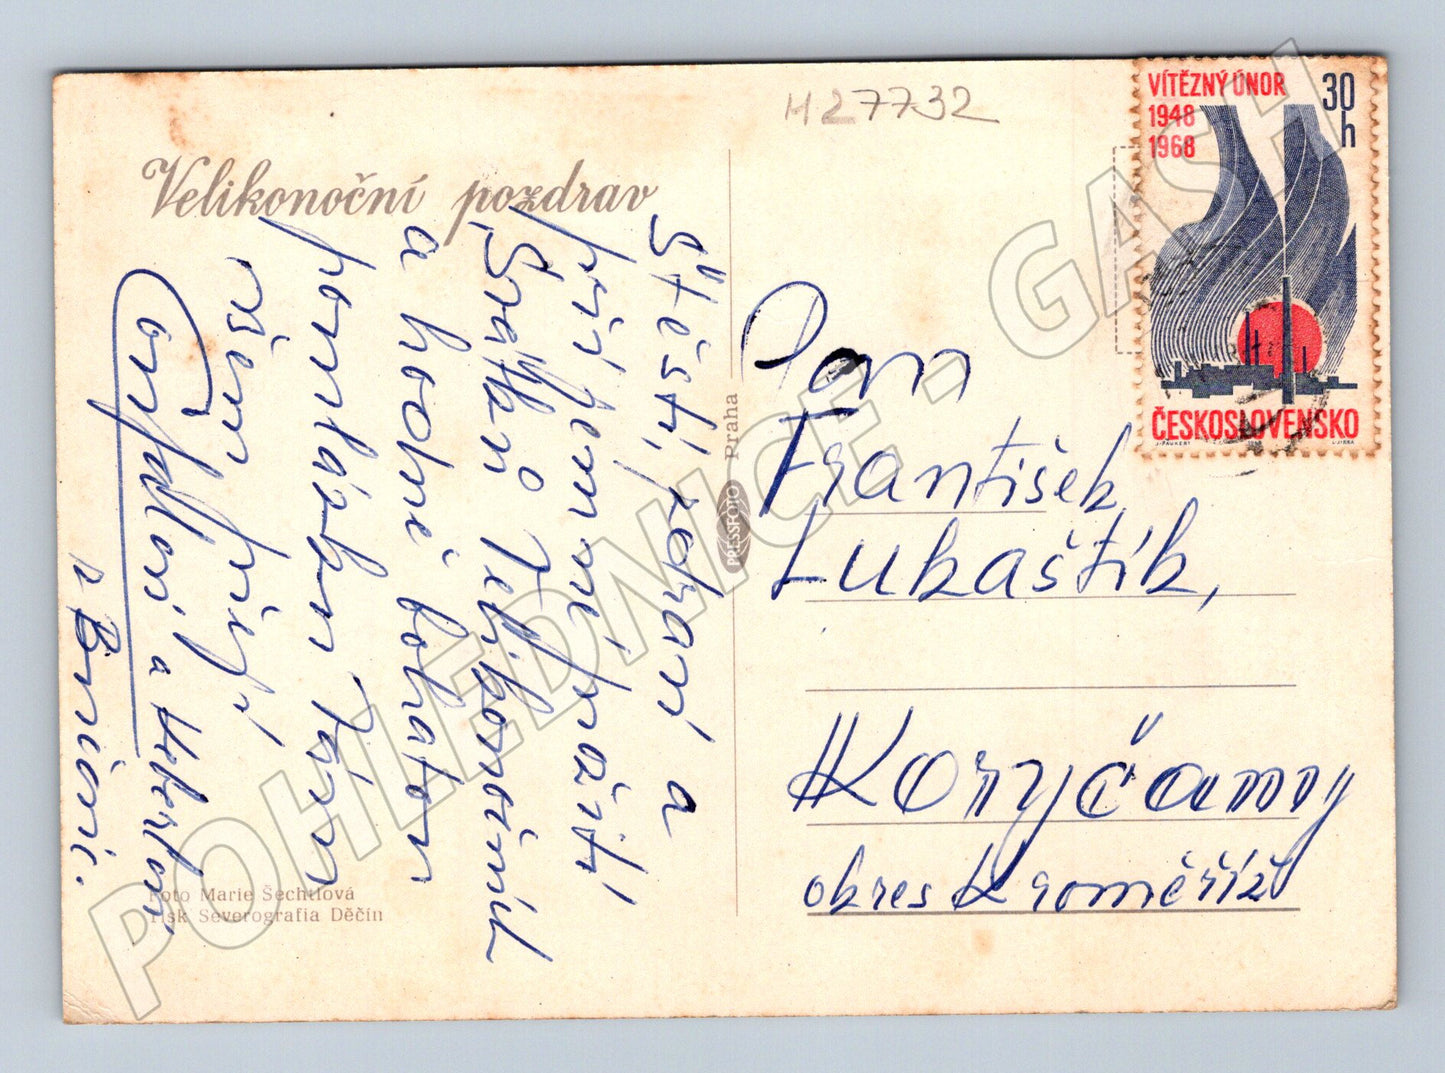 H27732
VÍTĚZNÝ ÚNOR
1948
1968
30
h
ČESKOSLOVENSKO
J. RAUKERT
L. JIRKA
Velikonoční pozdrav
Štěstí, zdraví a
příjemné prožití
Svátků Velikonočních
a hodně bohatou
pomlázku Vám
všem přejí
Ondrovi a Heberlovi
z Brníčí.
Pan
František
Lukaštík,
Koryčany
okres Kroměříž
Foto Marie Šechtlová
Tisk Severografia Děčín
PRESSFOTO Praha
POHLEDNICE - GASH